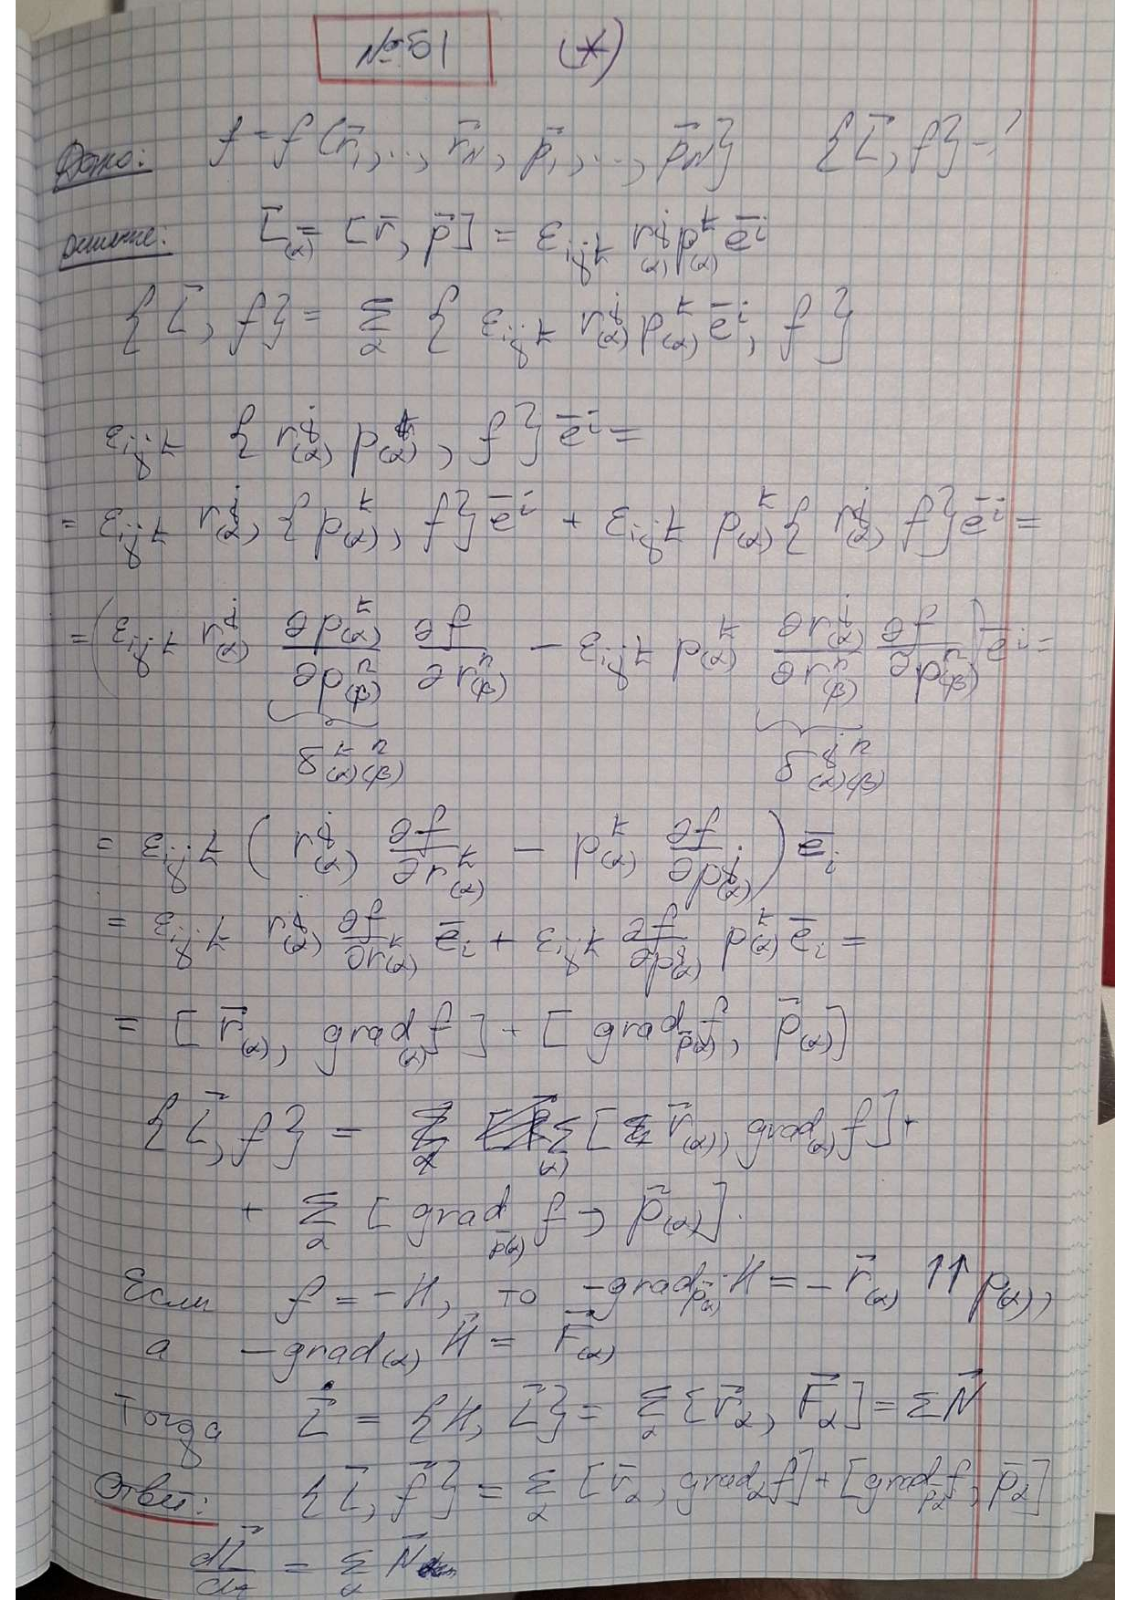 № 91 (*)
Дано: f = f (r⃗₁, ..., r⃗_N, p⃗₁, ..., p⃗_N} {L⃗, f} - ?
решение: L⃗_(α) = [r⃗, p⃗] = ε_ijk r^j_(α) p^k_(α) e̅^i
{L⃗, f} = Σ_α { ε_ijk r^j_(α) p^k_(α) e̅^i, f }
ε_ijk { r^j_(α) p^k_(α), f} e̅^i =
= ε_ijk r^j_(α), {p^k_(α), f} e̅^i + ε_ijk p^k_(α) { r^j_(α), f} e̅^i =
= (ε_ijk r^j_(α) ∂p^k_(α)/∂p^n_(β) ∂f/∂r^n_(β) - ε_ijk p^k_(α) ∂r^j_(α)/∂r^n_(β) ∂f/∂p^n_(β)) e̅^i =
δ^k_(α) ^n_(β) δ^j_(α) ^n_(β)
= ε_ijk ( r^j_(α) ∂f/∂r^k_(α) - p^k_(α) ∂f/∂p^j_(α) ) e̅_i
= ε_ijk r^j_(α) ∂f/∂r^k_(α) e̅_i + ε_ijk ∂f/∂p^j_(α) p^k_(α) e̅_i =
= [ r⃗_(α), grad_(α) f ] + [ grad_p⃗(α) f, p⃗_(α)]
{L⃗, f} = Σ_α Σ_(α) [ r⃗_(α), grad_(α) f ] +
+ Σ_α [ grad_p̅(α) f, p⃗_(α)].
Если f = -H, то -grad_p⃗α H = - r⃗_(α) ↑↑ p_(α),
а -grad_(α) H = F⃗_(α)
Тогда L⃗̇ = {H, L⃗} = Σ_α [r⃗_α, F⃗_α] = Σ N⃗
Ответ: {L⃗, f⃗} = Σ_α [r⃗_α, grad_α f] + [grad_p⃗α f, p⃗_α]
dL⃗/dt = Σ_α N⃗